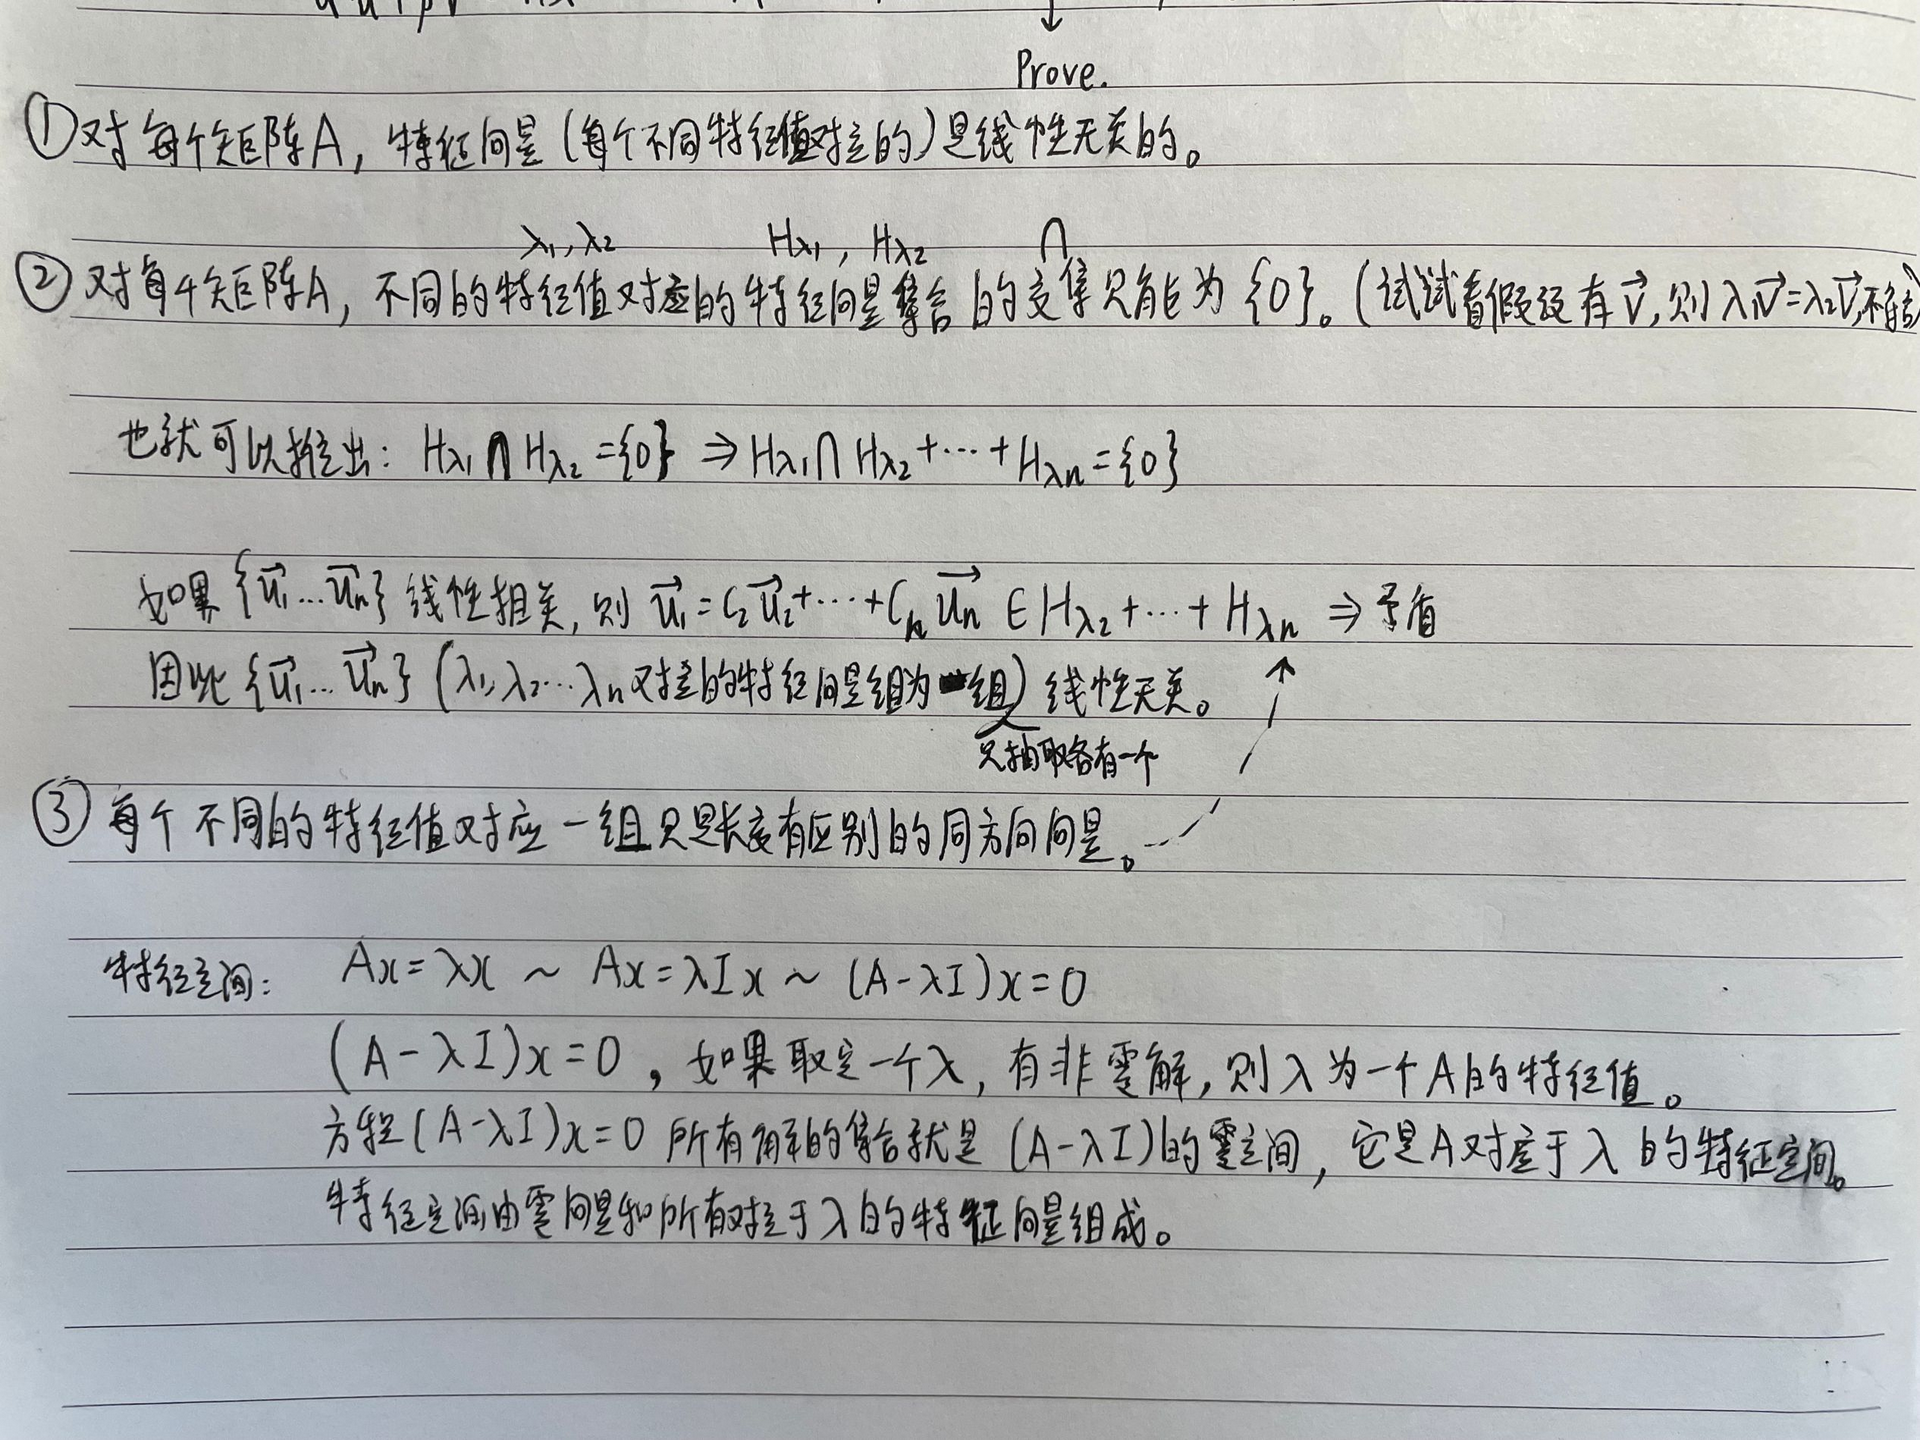 Prove.
①对每个矩阵A，特征向量（每个不同特征值对应的）是线性无关的。
λ₁,λ₂ Hλ₁, Hλ₂ ∩
②对每个矩阵A，不同的特征值对应的特征向量集合的交集只能为{0}。（试试看假设有v⃗，则λ₁v⃗=λ₂v⃗,
也就可以推出：Hλ₁∩Hλ₂={0} ⇒ Hλ₁∩Hλ₂+⋯+Hλn={0}
如果{u⃗₁…u⃗n}线性相关，则u⃗₁=C₂u⃗₂+⋯+Cnu⃗n ∈Hλ₂+⋯+Hλn ⇒矛盾
因此{u⃗₁…u⃗n}（λ₁,λ₂…λn对应的特征向量组为一组）线性无关。
只抽取各有一个
③每个不同的特征值对应一组只是长度有区别的同方向向量。
特征空间： Ax=λx ~ Ax=λIx ~ (A-λI)x=0
(A-λI)x=0，如果取定一个λ，有非零解，则λ为一个A的特征值。
方程(A-λI)x=0所有解的集合就是(A-λI)的零空间，它是A对应于λ的特征空间。
特征空间由零向量和所有对应于λ的特征向量组成。